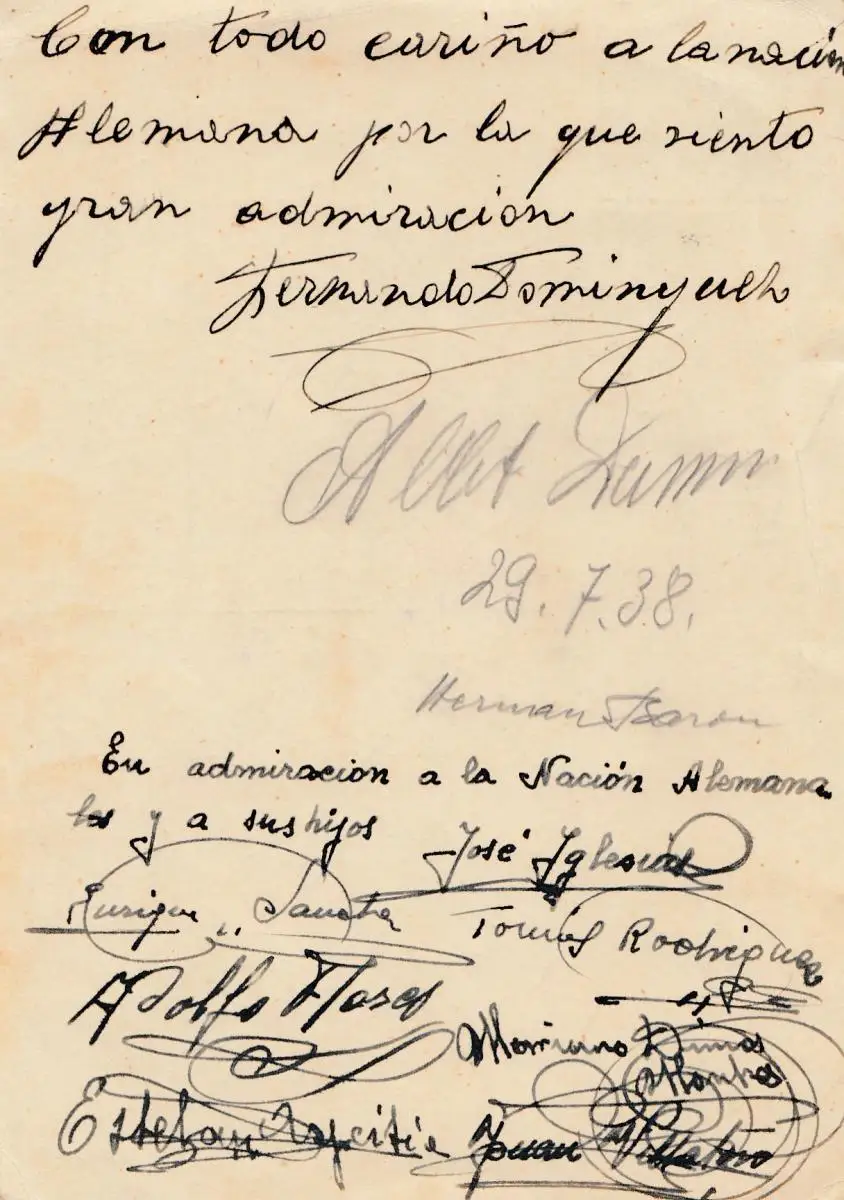 Con todo cariño a la nación
Alemana por la que siento
gran admiracion
Fernando Dominguez
Albert
29.7.38.
Herman Baron
En admiracion a la Nación Alemana
y a sus hijos
José Iglesias
Enrique Sanchez
Tomás Rodriguez
Adolfo
Mariano
Esteban
Juan